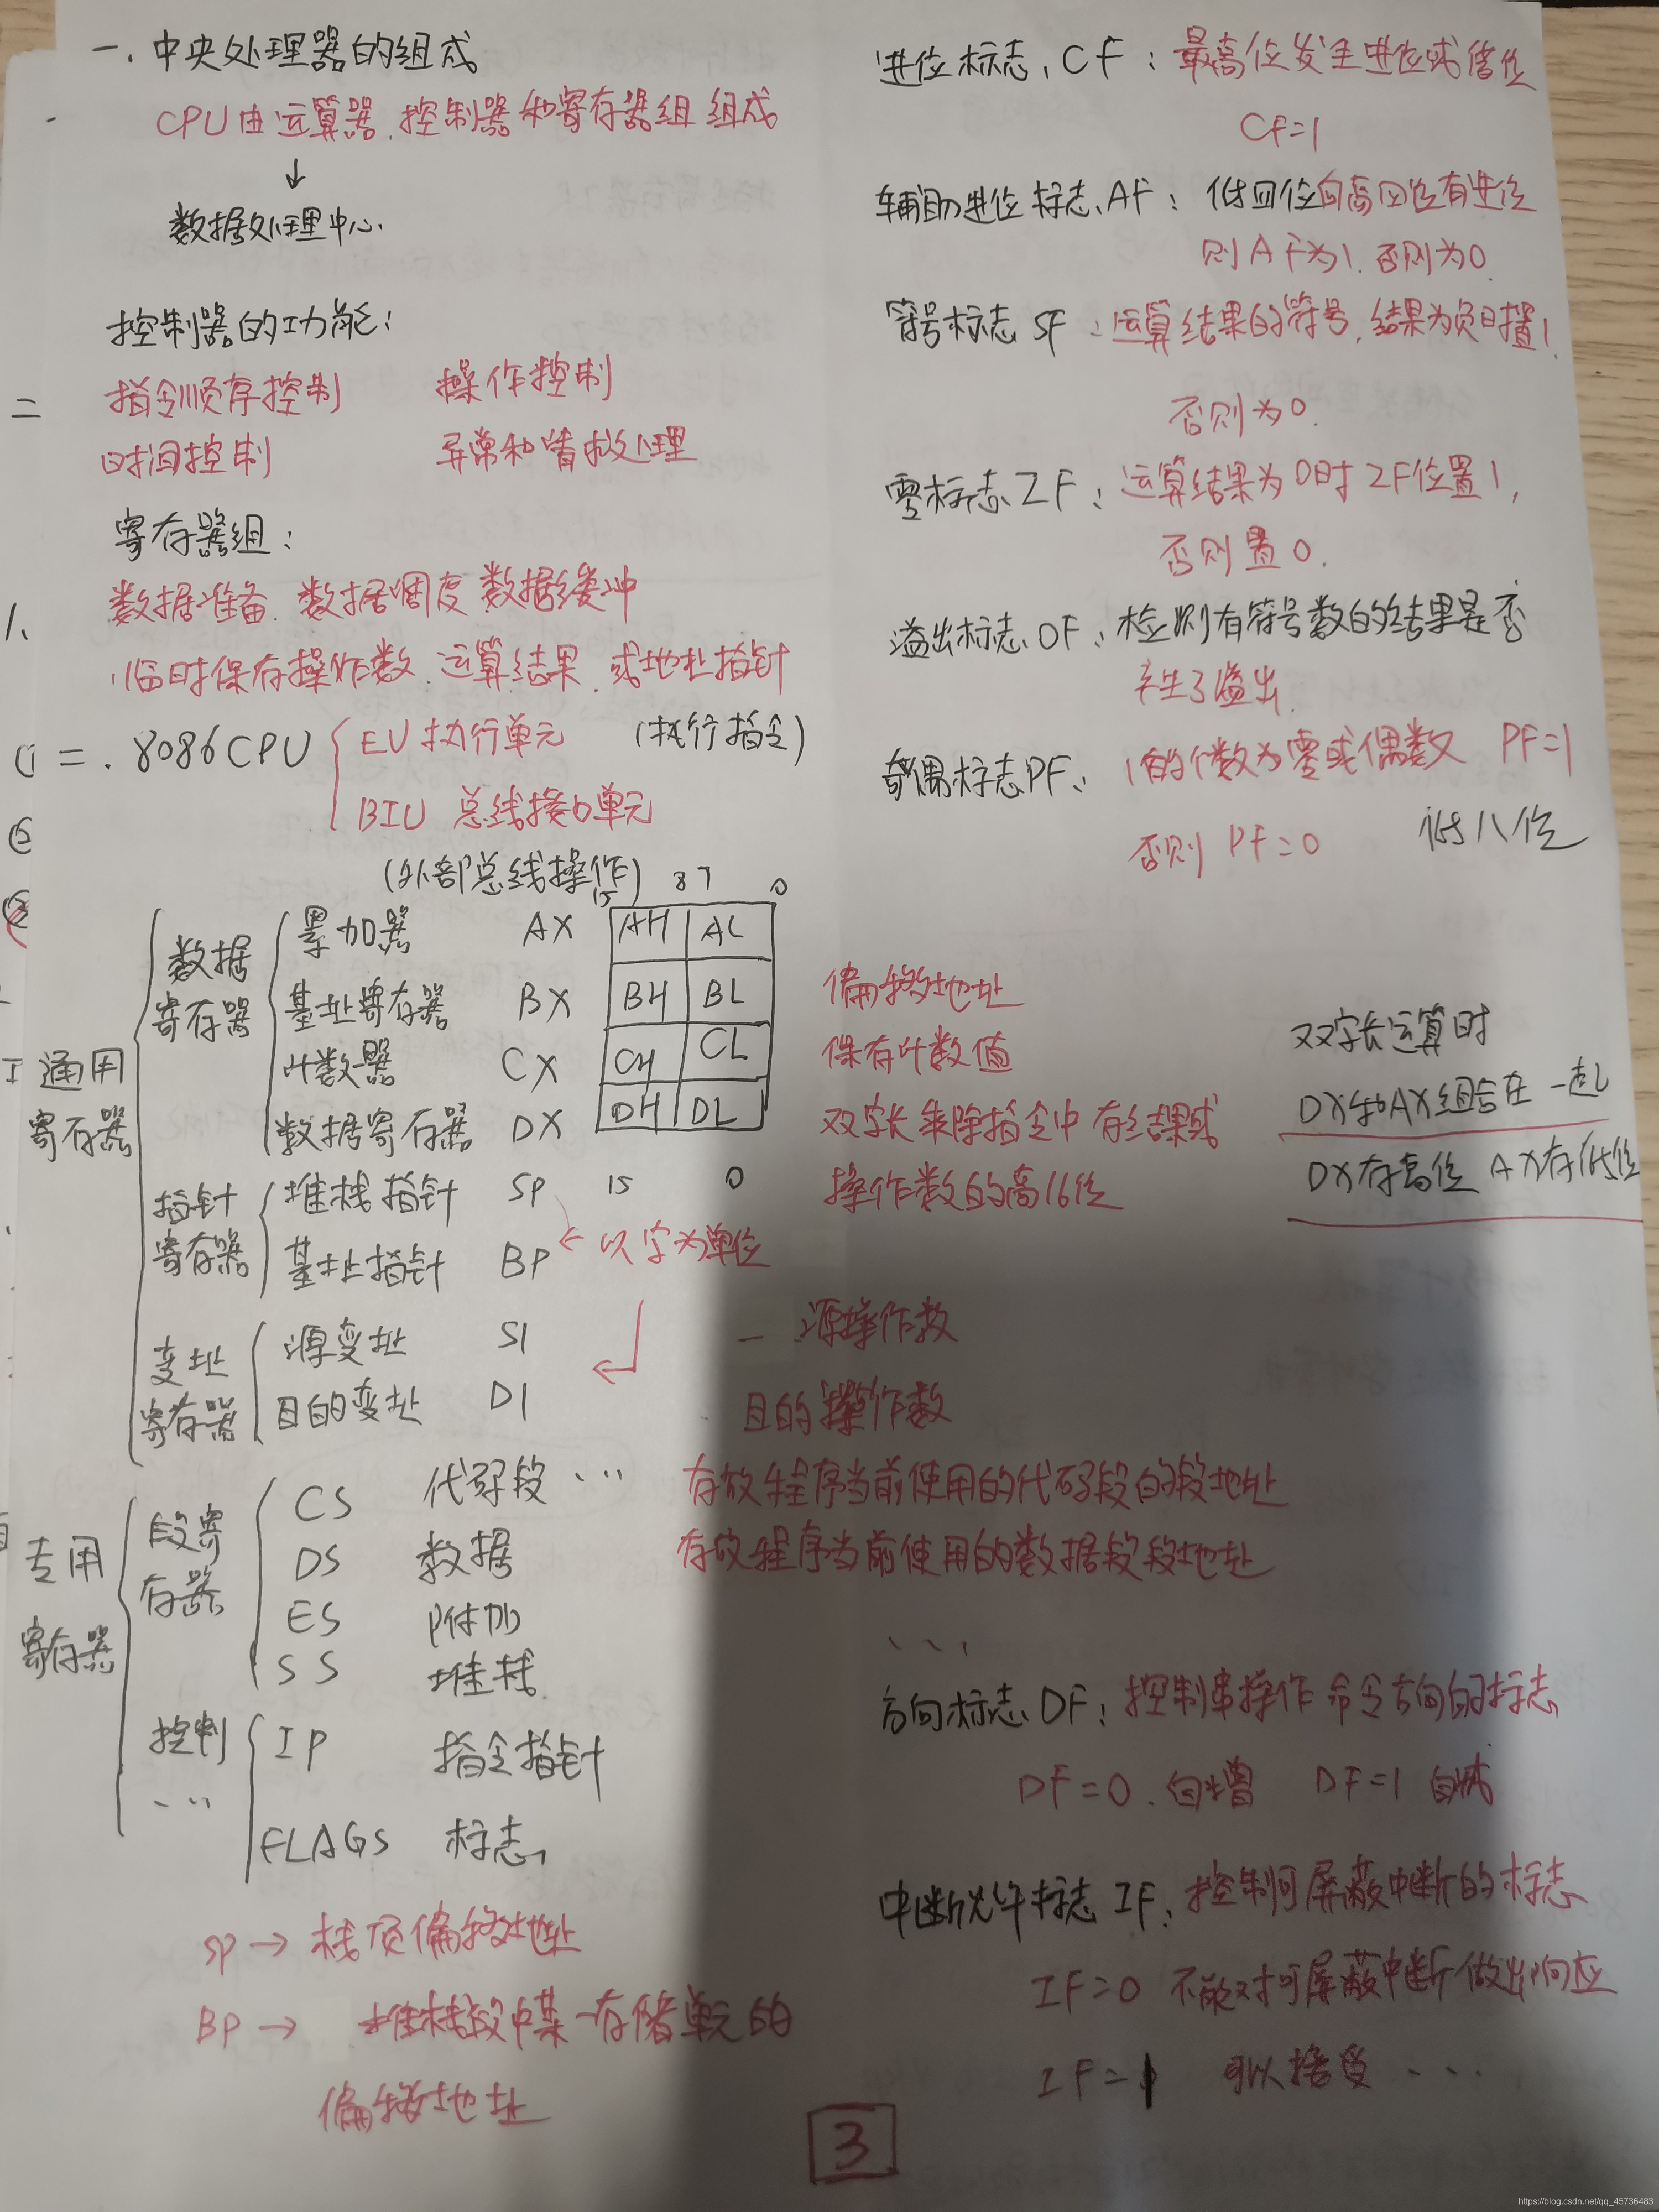 一.中央处理器的组成
CPU由运算器、控制器和寄存器组 组成
↓
数据处理中心.
控制器的功能:
指令顺序控制 操作控制
时间控制 异常和请求处理
寄存器组:
数据准备、数据调度 数据缓冲
临时保存操作数、运算结果、或地址指针
二.8086CPU { EU 执行单元 (执行指令)
BIU 总线接口单元
(外部总线操作)
15 87 0
通用寄存器
数据寄存器
累加器 AX AH AL
基址寄存器 BX BH BL 偏移地址
计数器 CX CH CL 保存计数值
数据寄存器 DX DH DL 双字长乘除指令中 存结果或
操作数的高16位
指针寄存器
堆栈指针 SP 15 0
基址指针 BP ← 以字为单位
变址寄存器
源变址 SI 一 源操作数
目的变址 DI 目的操作数
专用寄存器
段寄存器
CS 代码段 … 存放程序当前使用的代码段的段地址
DS 数据 存放程序当前使用的数据段段地址
ES 附加
SS 堆栈
控制 …
IP 指令指针
FLAGS 标志
SP → 栈顶偏移地址
BP → 堆栈段中某一存储单元的
偏移地址
进位标志、CF: 最高位发生进位或借位
CF=1
辅助进位标志、AF: 低四位向高四位有进位
则AF为1.否则为0.
符号标志 SF:运算结果的符号,结果为负时置1.
否则为0.
零标志、ZF: 运算结果为0时 ZF位置1,
否则置0.
溢出标志、OF: 检测有符号数的结果是否
产生了溢出.
奇偶标志PF: 1的个数为零或偶数 PF=1
否则 PF=0 低八位
双字长运算时
DX和AX组合在一起
DX存高位 AX存低位
方向标志、DF: 控制串操作命令方向的标志
DF=0.自增 DF=1 自减
中断允许标志 IF: 控制可屏蔽中断的标志
IF=0 不能对可屏蔽中断做出响应
IF=1 可以接受 …
3
https://blog.csdn.net/qq_45736483